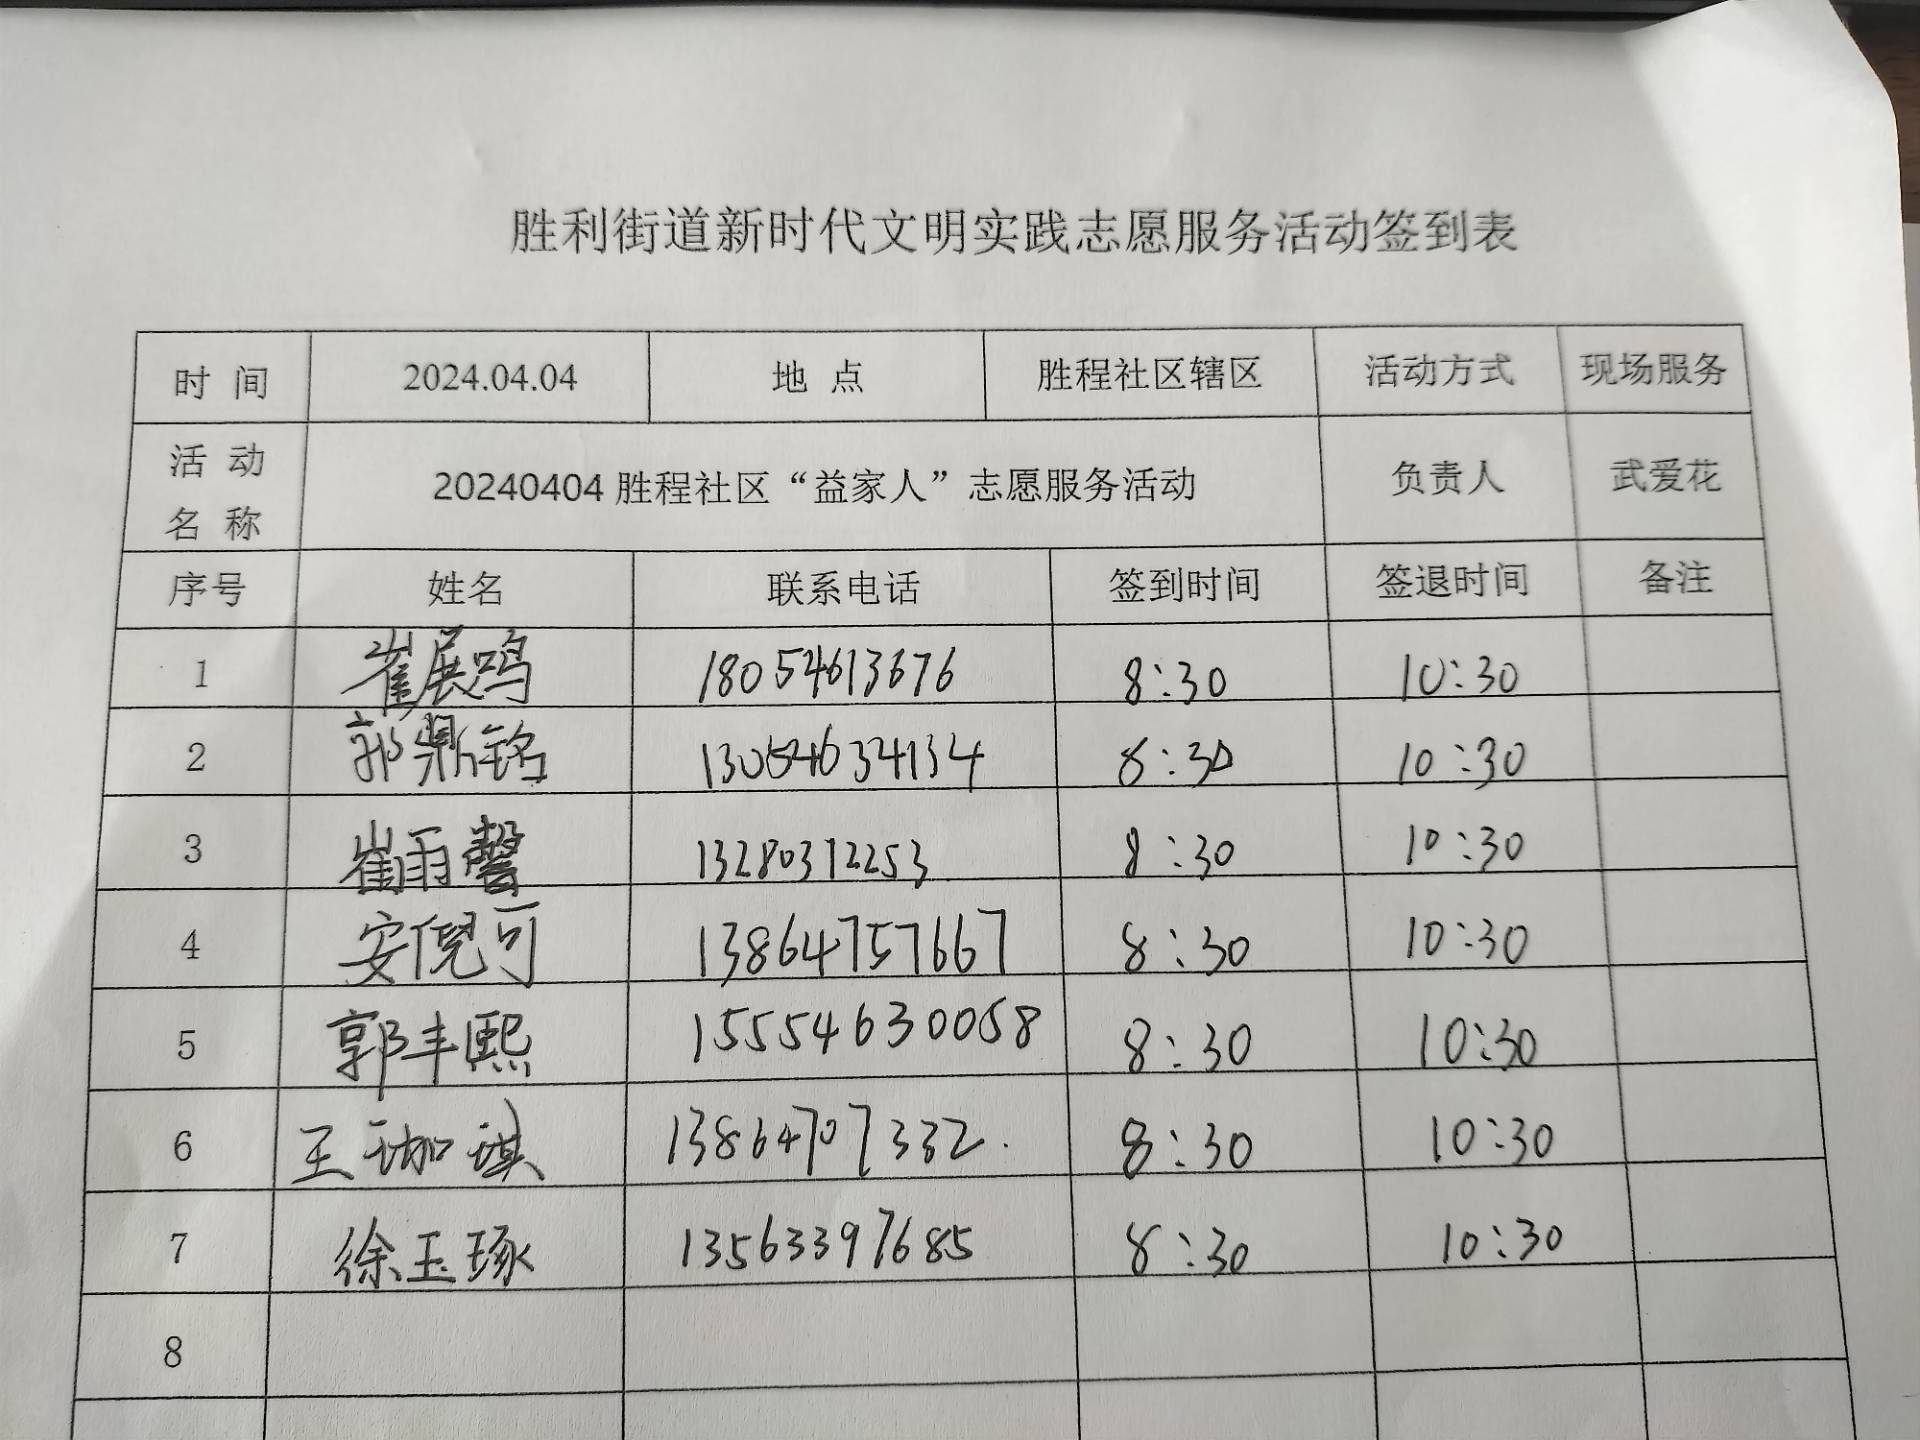 胜利街道新时代文明实践志愿服务活动签到表
时 间 2024.04.04 地 点 胜程社区辖区 活动方式 现场服务
活 动 名 称 20240404 胜程社区“益家人”志愿服务活动 负责人 武爱花
序号 姓名 联系电话 签到时间 签退时间 备注
1 崔展鸣 18054613676 8:30 10:30
2 郭鼎铭 13054634134 8:30 10:30
3 崔雨馨 13280312253 8:30 10:30
4 安倪可 13864757667 8:30 10:30
5 郭丰熙 15554630058 8:30 10:30
6 王珈琪 13864707332. 8:30 10:30
7 徐玉琢 13563397685 8:30 10:30
8